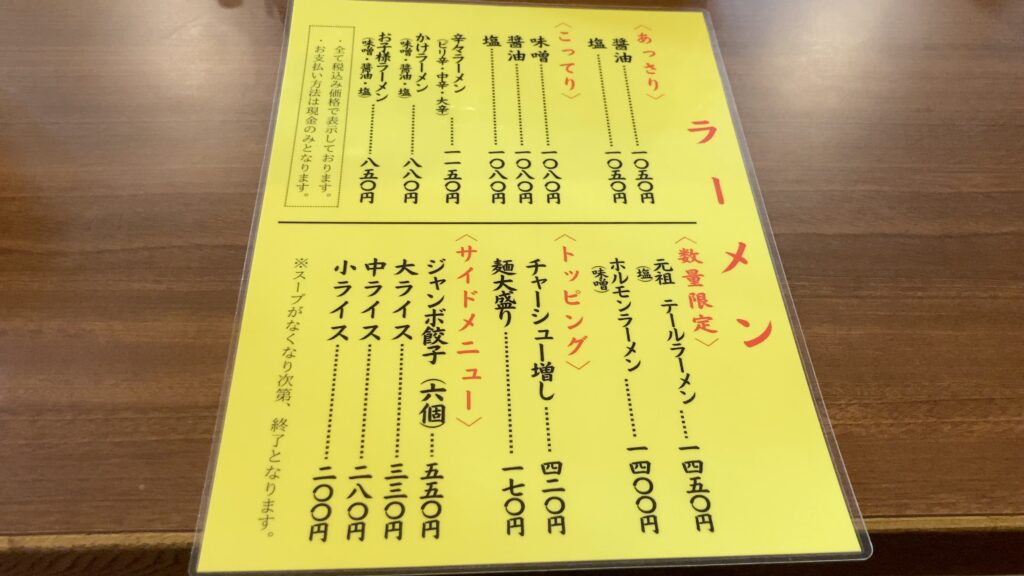 ラーメン
〈あっさり〉
醤油…………一〇五〇円
塩…………一〇五〇円
〈こってり〉
味噌…………一〇八〇円
醤油…………一〇八〇円
塩…………一〇八〇円
辛々ラーメン……一一五〇円
(ピリ辛・中辛・大辛)
かけラーメン………八八〇円
(味噌・醤油・塩)
お子様ラーメン………八五〇円
(味噌・醤油・塩)
・全て税込み価格で表示しております。
・お支払い方法は現金のみとなります。
〈数量限定〉
元祖 テールラーメン……一四五〇円
(塩)
ホルモンラーメン………一四〇〇円
(味噌)
〈トッピング〉
チャーシュー増し……四二〇円
麺大盛り…………一七〇円
〈サイドメニュー〉
ジャンボ餃子(六個)…五五〇円
大ライス…………三三〇円
中ライス…………二八〇円
小ライス…………二〇〇円
※スープがなくなり次第、終了となります。